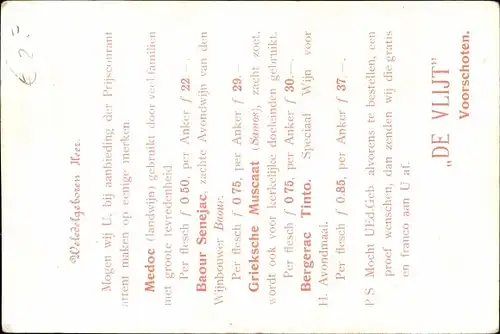 € 2.-
Weledelgeboren Heer.
Mogen wij U, bij aanbieding der Prijscourant
attent maken op eenige merken:
Medoc (landwijn) gebruikt door veel familiën
met groote tevredenheid
Per flesch f 0 60, per Anker f 22 —.
Baour Senejac, zachte Avondwijn van den
Wijnbouwer Baour.
Per flesch f 0 75, per Anker f 29.—
Grieksche Muscaat (Samos), zacht zoet,
wordt ook voor kerkelijke doeleinden gebruikt.
Per flesch f 0 75, per Anker f 30.—
Bergerac Tinto. Speciaal Wijn voor
H. Avondmaal.
Per flesch f 0.85, per Anker f 37 —.
P S Mocht UEd.Geb alvorens te bestellen, een
proef wenschen, dan zenden wij die gratis
en franco aan U af.
„DE VLIJT"
Voorschoten.